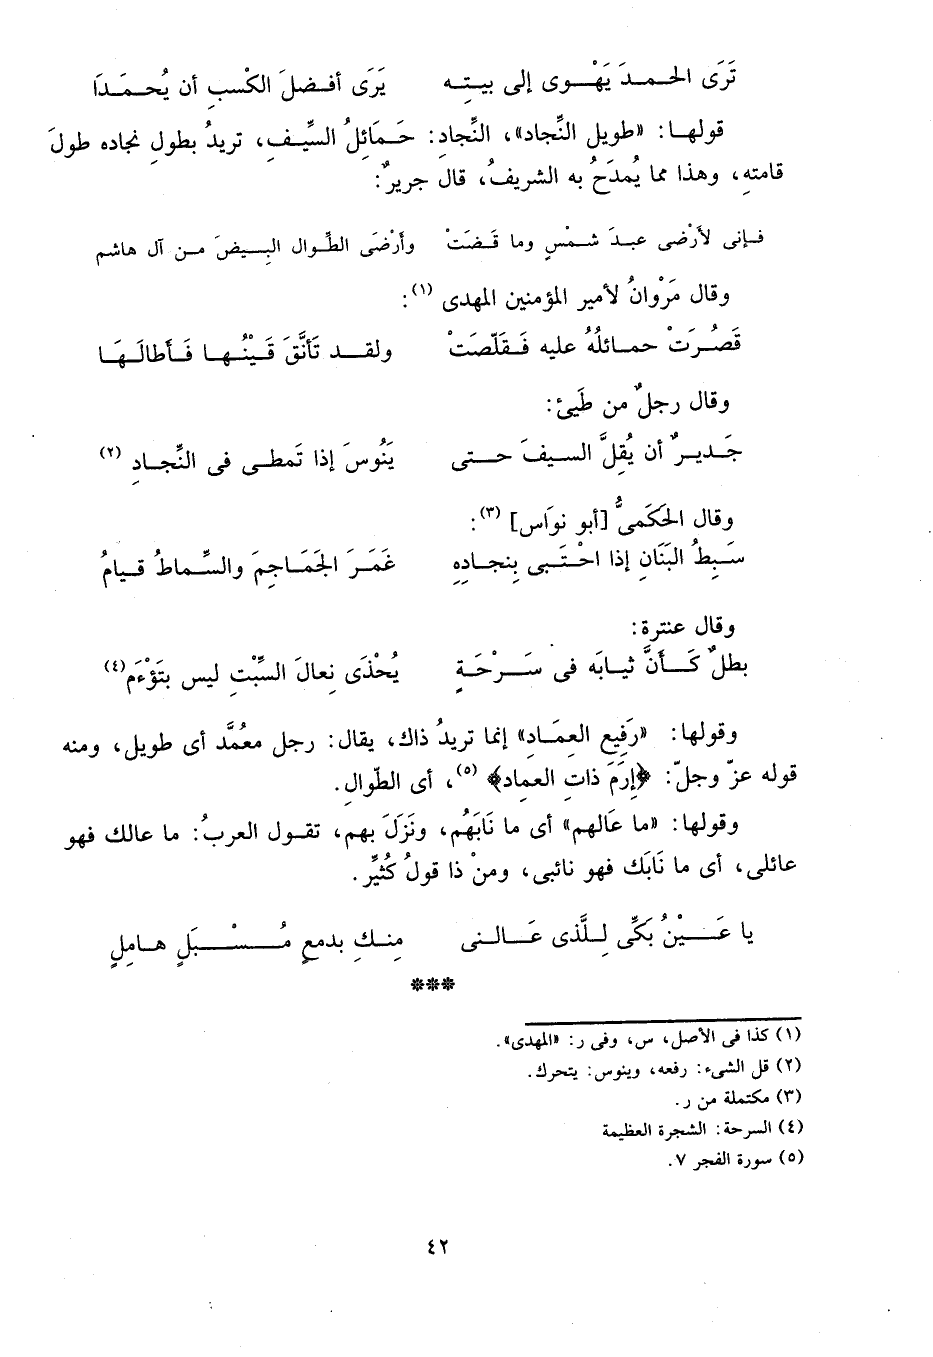 تَرَى الحمدَ يَهْوى إلى بيتِه يَرَى أفضلَ الكسْبِ أن يُحمَدَا
قولها: «طويل النِّجاد»، النِّجادِ: حَمَائلُ السِّيفِ، تريدُ بطولِ نجاده طولَ
قامتهِ، وهذا مما يُمدَحُ به الشريفُ، قال جريرٌ:
فإنى لأرْضى عبدَ شمْسٍ وما قَضَتْ وأَرْضَى الطِّوال البِيضَ من آل هاشم
وقال مَرْوانُ لأمير المؤمنين المهدى (١):
قَصُرَتْ حمائلُهُ عليه فَقلّصَتْ ولقد تَأنَّقَ قَيْنُها فَأطالَهَا
وقال رجلٌ من طَيئ:
جَديرٌ أن يُقِلَّ السيفَ حتى يَنُوسَ إذا تَمطى فى النِّجادِ (٢)
وقال الحَكَمىُّ [أبو نوَاس] (٣):
سَبِطُ البَنَانِ إذا احْتَبى بِنجادِهِ غَمَرَ الجَمَاجِمَ والسِّماطُ قيامُ
وقال عنترة:
بطلٌ كَأنَّ ثيابَه فى سَرْحَةٍ يُحْذَى نِعالَ السِّبْتِ ليس بتَوْءَمِ (٤)
وقولها: «رَفِيع العِمَاد» إنما تريدُ ذاك، يقال: رجل معُمَّد أى طويل، ومنه
قوله عزّ وجلّ: ﴿إرَمَ ذاتِ العمِاد﴾ (٥)، أى الطّوالِ.
وقولها: «ما عَالهم» أى ما نَابَهُم، ونَزَلَ بهم، تقول العربُ: ما عالك فهو
عائلى، أى ما نَابَك فهو نائبى، ومنْ ذا قولُ كُثيِّر.
يا عَيْنُ بَكِّى لِلَّذى عَالنى مِنكِ بدمعٍ مُسْبَلٍ هامِلٍ
***
(١) كذا فى الأصل، س، وفى ر: «المهدى».
(٢) قل الشىء: رفعه، وينوس: يتحرك.
(٣) مكتملة من ر.
(٤) السرحة: الشجرة العظيمة
(٥) سورة الفجر ٧.
٤٢